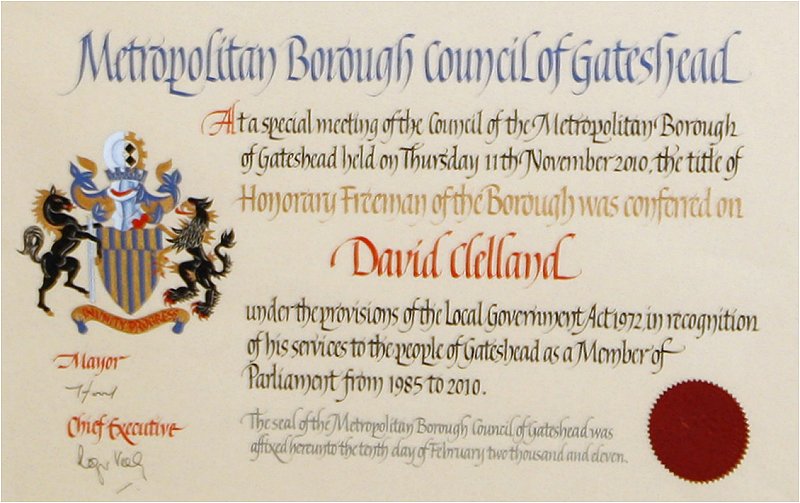 Metropolitan Borough Council of Gateshead
At a special meeting of the Council of the Metropolitan Borough
of Gateshead held on Thursday 11th November 2010, the title of
Honorary Freeman of the Borough was conferred on
David Clelland
under the provisions of the Local Government Act 1972, in recognition
of his services to the people of Gateshead as a Member of
Parliament from 1985 to 2010.
The seal of the Metropolitan Borough Council of Gateshead was
affixed hereunto the tenth day of February two thousand and eleven.
Mayor
Chief Executive